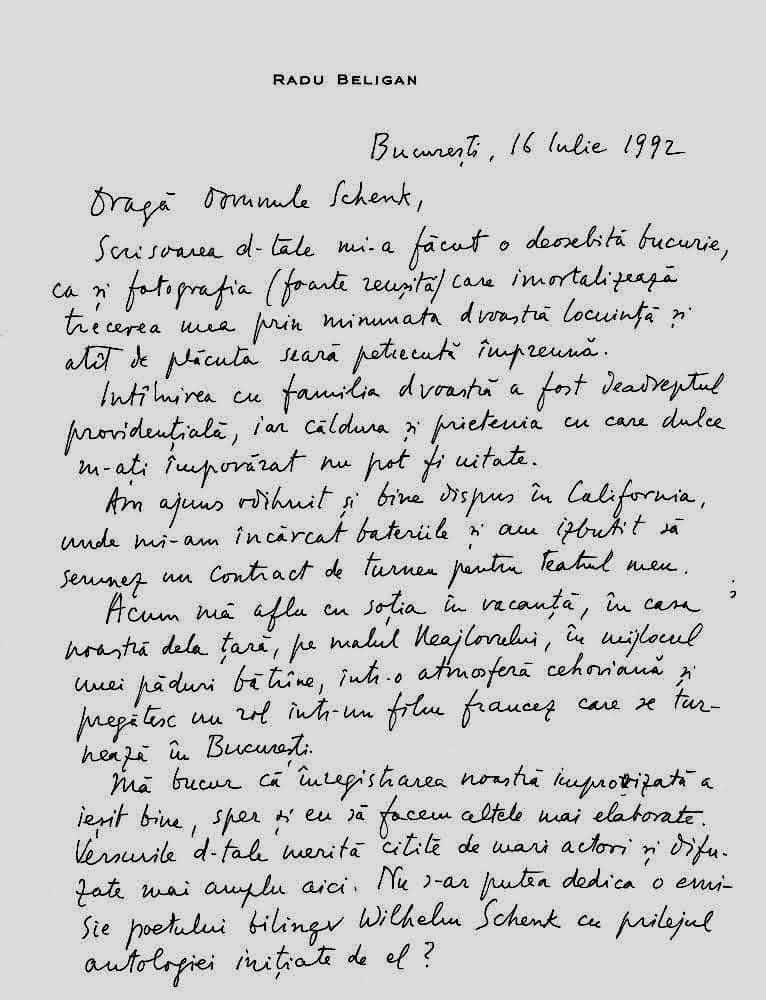 RADU BELIGAN
București, 16 Iulie 1992
Dragă Domnule Schenk,
Scrisoarea d-tale mi-a făcut o deosebită bucurie,
ca și fotografia (foarte reușită) care imortalizează
trecerea mea prin minunata dvoastră locuință și
atît de plăcuta seară petrecută împreună.
Intîlnirea cu familia dvoastră a fost deadreptul
providențială, iar căldura și prietenia cu care dulce
m-ați împovărat nu pot fi uitate.
Am ajuns odihnit și bine dispus în California,
unde mi-am încărcat bateriile și am izbutit să
semnez un contract de turneu pentru teatrul meu.
Acum mă aflu cu soția în vacanță, în casa
noastră dela țară, pe malul Neajlovului, în mijlocul
unei păduri bătrîne, într-o atmosferă cehoviană și
pregătesc un rol într-un film francez care se tur-
nează în București.
Mă bucur că înregistrarea noastră improvizată a
ieșit bine, sper și eu să facem altele mai elaborate.
Versurile d-tale merită citite de mari actori și difu-
zate mai amplu aici. Nu s-ar putea dedica o emi-
sie poetului bilingv Wilhelm Schenk cu prilejul
antologiei inițiate de el?